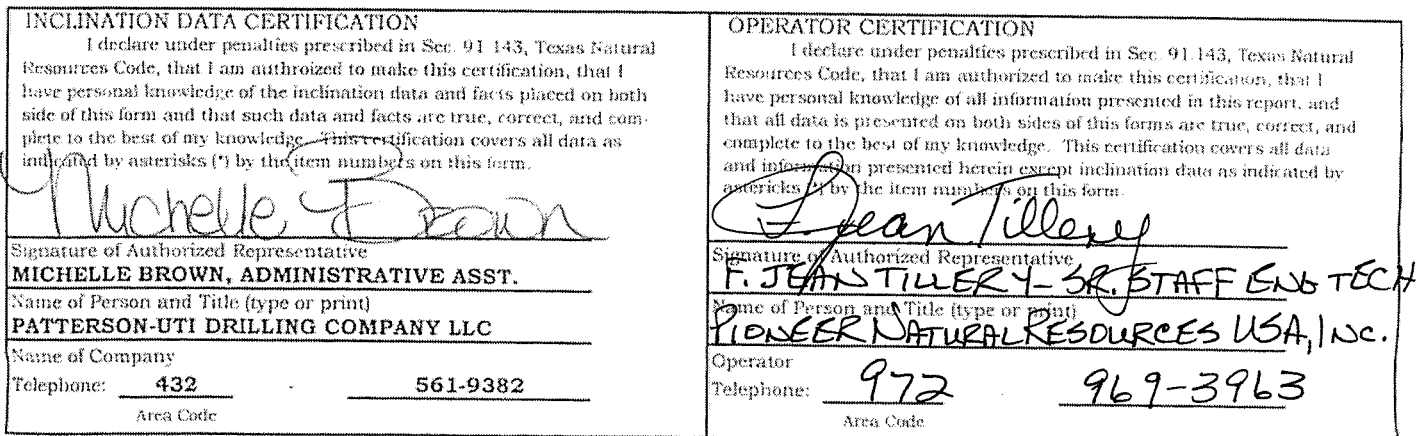 INCLINATION DATA CERTIFICATION
I declare under penalties prescribed in Sec. 91.143, Texas Natural
Resources Code, that I am authroized to make this certification, that I
have personal knowledge of the inclination data and facts placed on both
side of this form and that such data and facts are true, correct, and com-
plete to the best of my knowledge. This certification covers all data as
indicated by asterisks (*) by the item numbers on this form.
Michelle Brown
Signature of Authorized Representative
MICHELLE BROWN, ADMINISTRATIVE ASST.
Name of Person and Title (type or print)
PATTERSON-UTI DRILLING COMPANY LLC
Name of Company
Telephone: 432 - 561-9382
Area Code
OPERATOR CERTIFICATION
I declare under penalties prescribed in Sec. 91.143, Texas Natural
Resources Code, that I am authorized to make this certification, that I
have personal knowledge of all information presented in this report, and
that all data is presented on both sides of this forms are true, correct, and
complete to the best of my knowledge. This certification covers all data
and information presented herein except inclination data as indicated by
astericks (*) by the item numbers on this form.
F. Jean Tillery
Signature of Authorized Representative
F. JEAN TILLERY - SR. STAFF ENG TECH
Name of Person and Title (type or print)
PIONEER NATURAL RESOURCES USA, INC.
Operator
Telephone: 972 - 969-3963
Area Code